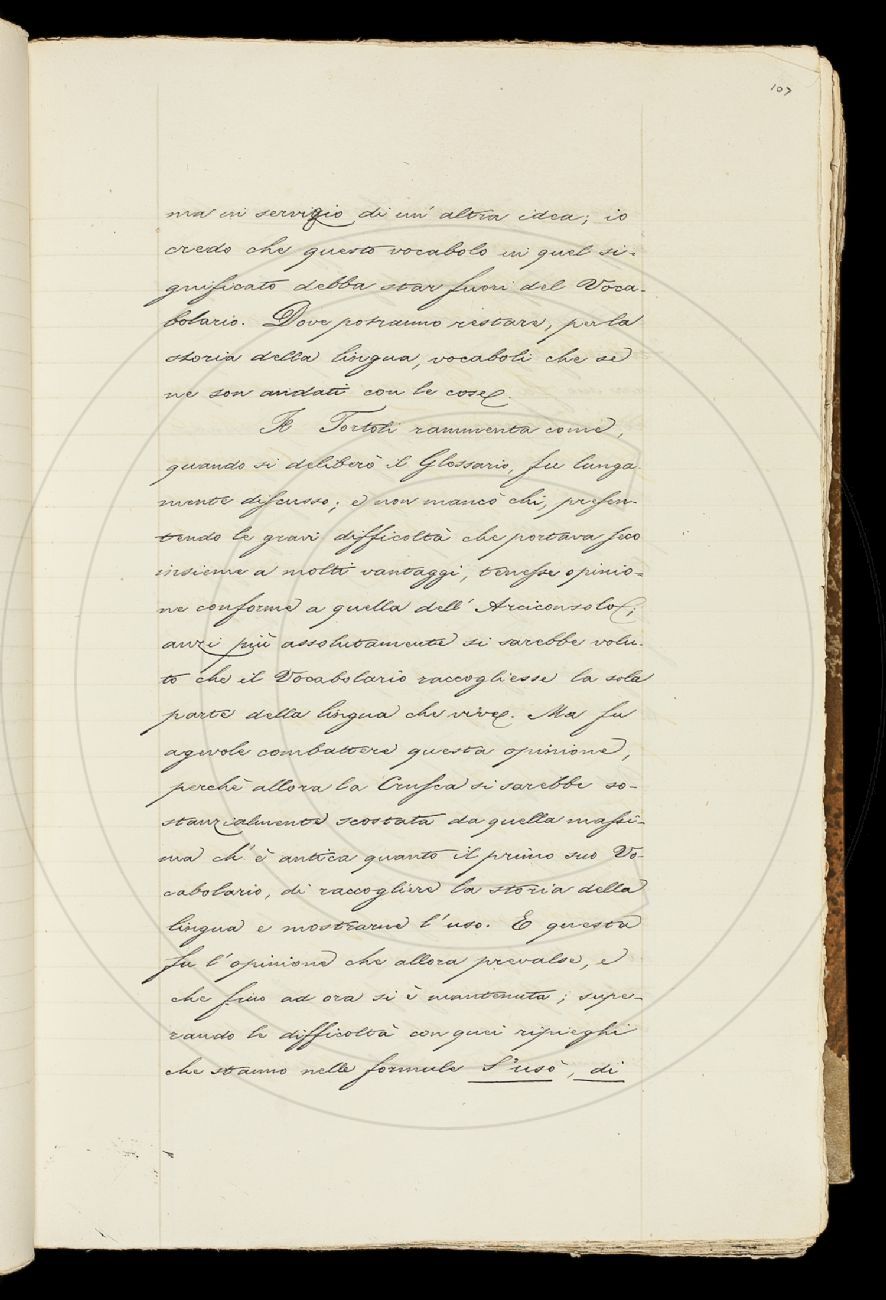 107
ma in servigio di un' altra idea; io
credo che questo vocabolo in quel si-
gnificato debba star fuori del Voca-
bolario. Dove potranno restare, per la
storia della lingua, vocaboli che se
ne son andati con le cose.
Il Tortoli rammenta come,
quando si deliberò il Glossario, fu lunga-
mente discusso; e non mancò chi, presen-
tendo le gravi difficoltà che portava seco
insieme a molti vantaggi, tenesse opinio-
ne conforme a quella dell' Arciconsolo;
anzi più assolutamente si sarebbe volu-
to che il Vocabolario raccogliesse la sola
parte della lingua che vive. Ma fu
agevole combattere questa opinione,
perchè allora la Crusca si sarebbe so-
stanzialmente scostata da quella massi-
ma ch' è antica quanto il primo suo Vo-
cabolario, di raccogliere la storia della
lingua e mostrarne l' uso. E questa
fu l' opinione che allora prevalse, e
che fino ad ora si è mantenuta; supe-
rando le difficoltà con quei ripieghi
che stanno nelle formule S' usò, di